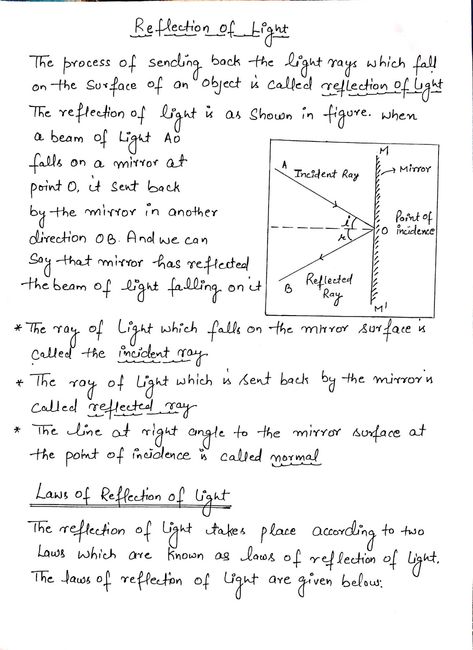 Reflection of Light
The process of sending back the light rays which fall
on the surface of an object is called reflection of light
The reflection of light is as shown in figure. when
a beam of Light AO
falls on a mirror at
point O, it sent back
by the mirror in another
direction OB. And we can
Say that mirror has reflected
the beam of light falling on it
M
A
Incident Ray
Mirror
i
O
Point of
incidence
r
B
Reflected
Ray
M'
* The ray of Light which falls on the mirror surface is
called the incident ray
* The ray of Light which is sent back by the mirror is
called reflected ray
* The line at right angle to the mirror surface at
the point of incidence is called normal
Laws of Reflection of Light
The reflection of Light takes place according to two
Laws which are known as laws of reflection of Light.
The laws of reflection of Light are given below: